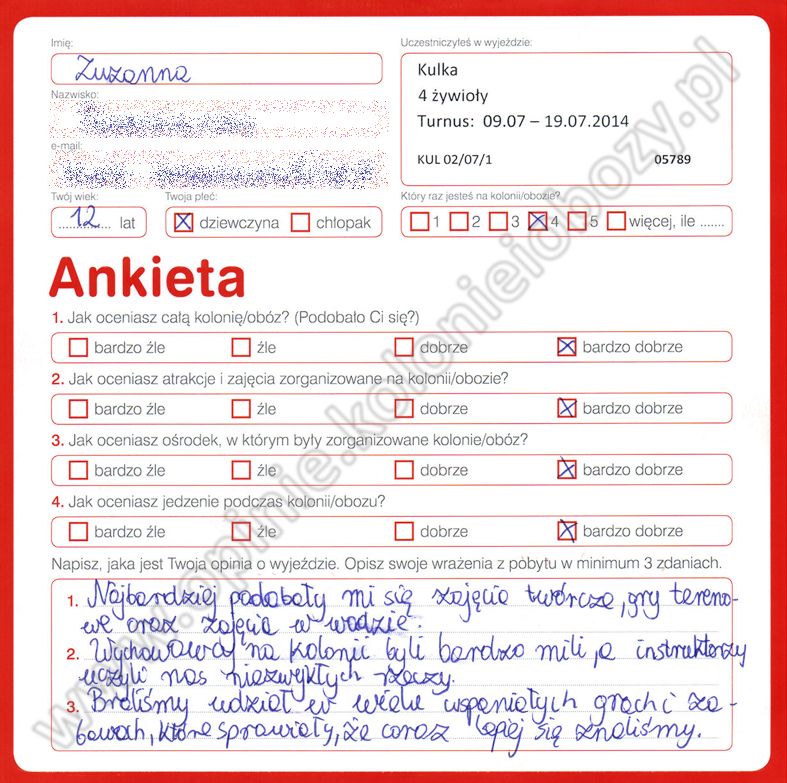 Imię:
Zuzanna
Uczestniczyłeś w wyjeździe:
Kulka
4 żywioły
Turnus: 09.07 – 19.07.2014
KUL 02/07/1 05789
Nazwisko:
e-mail:
Twój wiek:
12 lat
Twoja płeć:
dziewczyna chłopak
Który raz jesteś na kolonii/obozie?
1 2 3 4 5 więcej, ile .......
Ankieta
1. Jak oceniasz całą kolonię/obóz? (Podobało Ci się?)
bardzo źle źle dobrze bardzo dobrze
2. Jak oceniasz atrakcje i zajęcia zorganizowane na kolonii/obozie?
bardzo źle źle dobrze bardzo dobrze
3. Jak oceniasz ośrodek, w którym były zorganizowane kolonie/obóz?
bardzo źle źle dobrze bardzo dobrze
4. Jak oceniasz jedzenie podczas kolonii/obozu?
bardzo źle źle dobrze bardzo dobrze
Napisz, jaka jest Twoja opinia o wyjeździe. Opisz swoje wrażenia z pobytu w minimum 3 zdaniach.
1. Najbardziej podobały mi się zajęcia twórcze, gry tereno-
we oraz zajęcia w wodzie.
2. Wychowawcy na kolonii byli bardzo mili, a instruktorzy
uczyli nas niezwykłych rzeczy.
3. Braliśmy udział w wielu wspaniałych grach i za-
bawach, które sprawiały, że coraz lepiej się znaliśmy.
www.opinie.kolonieiobozy.pl